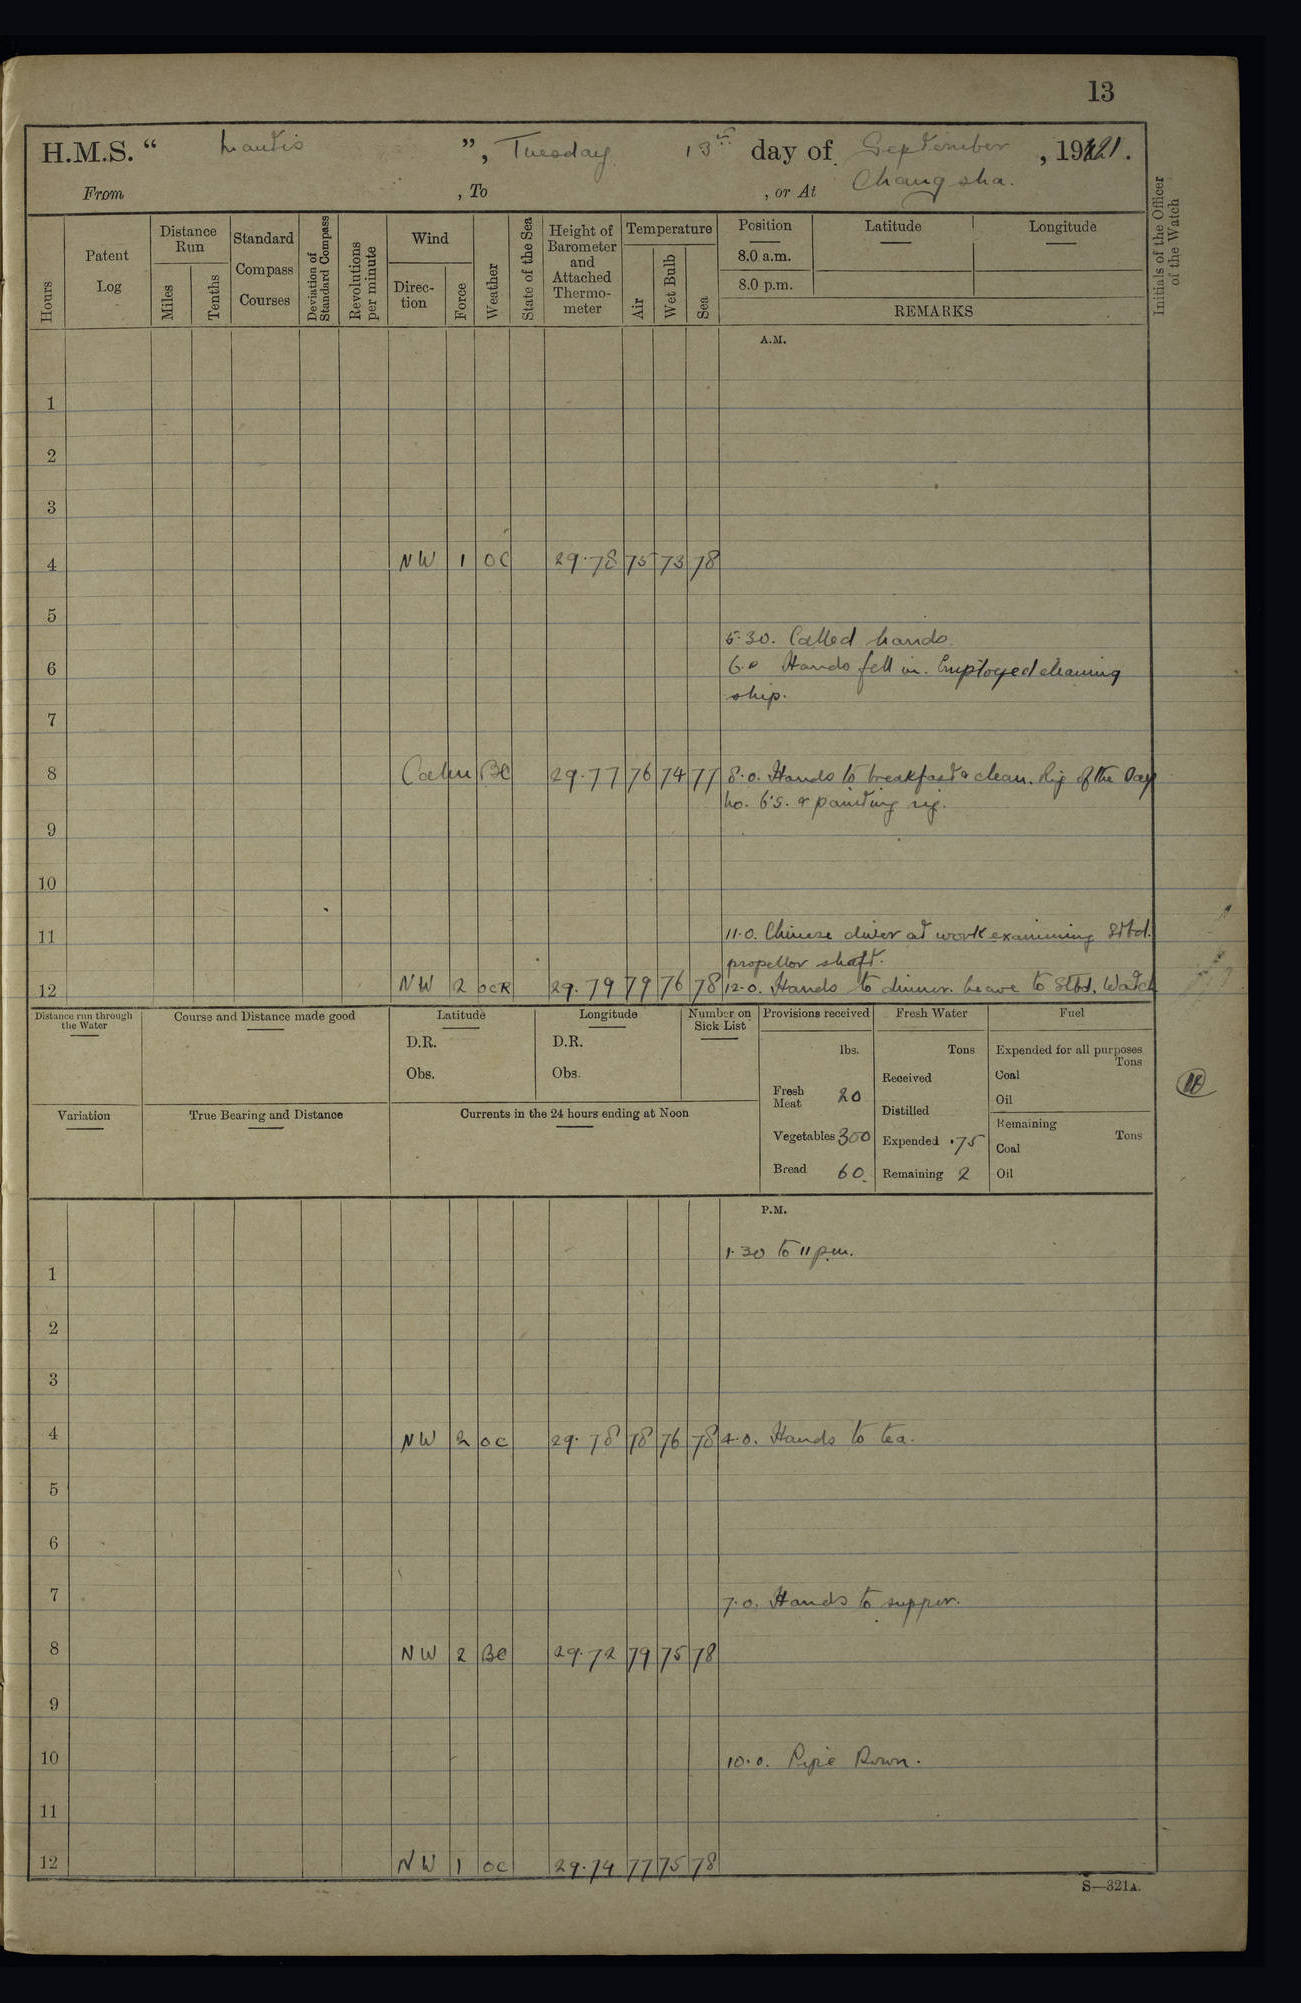 13
H.M.S. “ Mantis ”, Tuesday 13th day of September, 1921.
From , To , or At Changsha.
Hours
Patent Log
Distance Run
Miles
Tenths
Standard Compass Courses
Deviation of Standard Compass
Revolutions per minute
Wind
Direction
Force
Weather
State of the Sea
Height of Barometer and Attached Thermometer
Temperature
Air
Wet Bulb
Sea
Position
8.0 a.m.
8.0 p.m.
Latitude
Longitude
REMARKS
Initials of the Officer of the Watch
A.M.
1
2
3
4 NW 1 OC 29.78 75 73 78
5
5.30. Called hands.
6 6.0 Hands fell in. Employed cleaning
ship.
7
8 Calm BC 29.77 76 74 77 8.0. Hands to breakfast & clean. Rig of the Day
No. 6's. & painting rig.
9
10
11 11.0. Chinese diver at work examining Stbd.
propellor shaft.
12 NW 2 OCR 29.79 79 76 78 12.0. Hands to dinner. Leave to Stbd. Watch
Distance run through the Water
Course and Distance made good
Latitude
D.R.
Obs.
Longitude
D.R.
Obs.
Number on Sick List
Provisions received
lbs.
Fresh Meat 20
Vegetables 300
Bread 60.
Fresh Water
Tons
Received
Distilled
Expended .75
Remaining 2
Fuel
Expended for all purposes
Tons
Coal
Oil
Remaining
Tons
Coal
Oil
Variation
True Bearing and Distance
Currents in the 24 hours ending at Noon
P.M.
1.30 to 11 p.m.
1
2
3
4 NW 2 OC 29.78 78 76 78 4.0. Hands to tea.
5
6
7 7.0. Hands to supper.
8 NW 2 BC 29.72 79 75 78
9
10 10.0. Pipe Down.
11
12 NW 1 OC 29.74 77 75 78
S—321A.